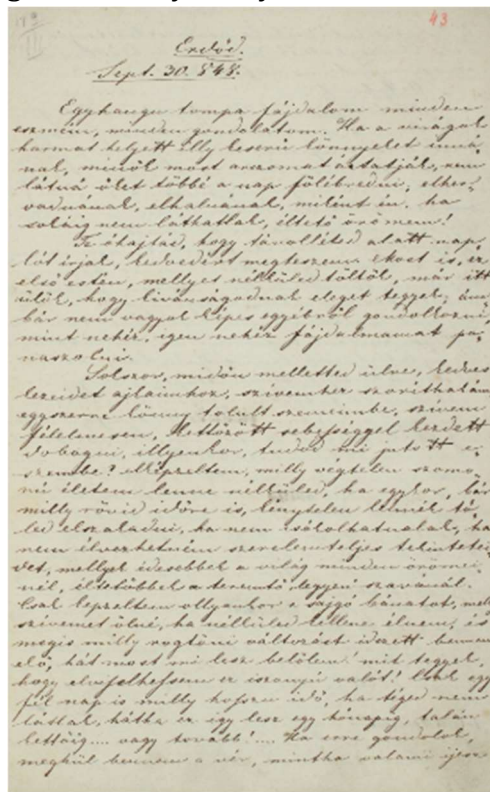 43
Erdőd.
Sept. 30. 848.
Egyhangu tompa fájdalom minden
eszmém, minden gondolatom. Ha a virágok
harmat helyett illy keserü könnyeket inná
nak, minők most arczomat áztatják, nem
látná őket többé a nap fölébredni, elher,
vadnának, elhalnának, mikint én, ha
sokáig nem láthatlak, éltető örömem!
Te óhajtád, hogy távolléted alatt nap,
lót irjak, kedvedért megteszem ekost is, ez
első estén, mellyet nélküled töltök, már itt
ülök, hogy kivánságodnak eleget tegyek, ám
bár nem vagyok képes egyébről gondolkozni,
mint nehéz, igen nehéz fájdalmamat pa,
naszolni.
Sokszor, midőn melletted ülve, kedves
kezeidet ajkaimhoz, szivemhez szoríthatám
egyszerre könny tolult szemeimbe, szivem
félelmesen, kettőzött sebességgel kezdett
dobogni, illyenkor, tudod mi jutott e,
szembe? elképzeltem, milly végtelen szomo,
rú életem lenne nélküled, ha egykor, bár
milly rövid időre is, kénytelen lennék tő,
led elszakadni, ha nem csókolhatnálak, ha
nem élvezhetném szerelemteljes tekintetei,
det, mellyek édesebbek a világ minden örömei,
nél, éltetőbbek a teremtő „legyen" szavánál.
Csak képzeltem ollyankor e sajgó bánatot, melly
szivemet ölné, ha nélküled kellene élnem, és
mégis milly rögtöni változást idézett bennem
elő, hát most mi lesz belőlem! mit tegyek,
hogy elviselhessem ez iszonyú valót! Csak egy
fél nap is milly hosszu idő, ha téged nem
látlak, hátha ez igy lesz egy hónapig, talán
kettőig.... vagy tovább!.... Ha erre gondolok,
meghül bennem a vér, mintha valami ijesz